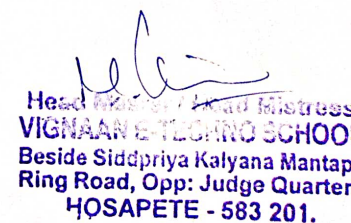 Head Master / Head Mistress
VIGNAAN E-TECHNO SCHOO
Beside Siddpriya Kalyana Mantap
Ring Road, Opp: Judge Quarter
HOSAPETE - 583 201.